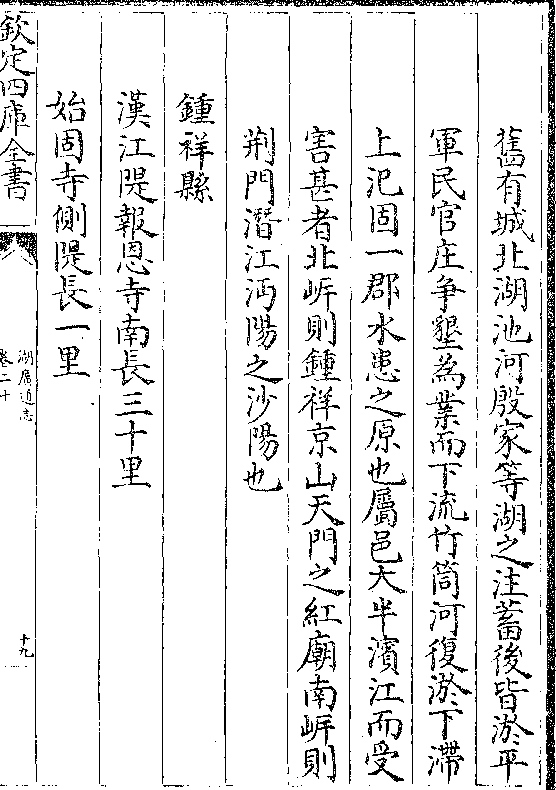 舊有城北湖池河殷家等湖之注蓄後皆淤平
軍民官庄争墾為業而下流竹筒河復淤下滯
上氾固一郡水患之原也屬邑大半濱江而受
害甚者北㟁則鍾祥京山天門之紅廟南㟁則
荆門潛江沔陽之沙陽也
鍾祥縣
漢江隄報恩寺南長三十里
始固寺側隄長一里
欽定四庫全書
湖廣通志
卷二十
十九